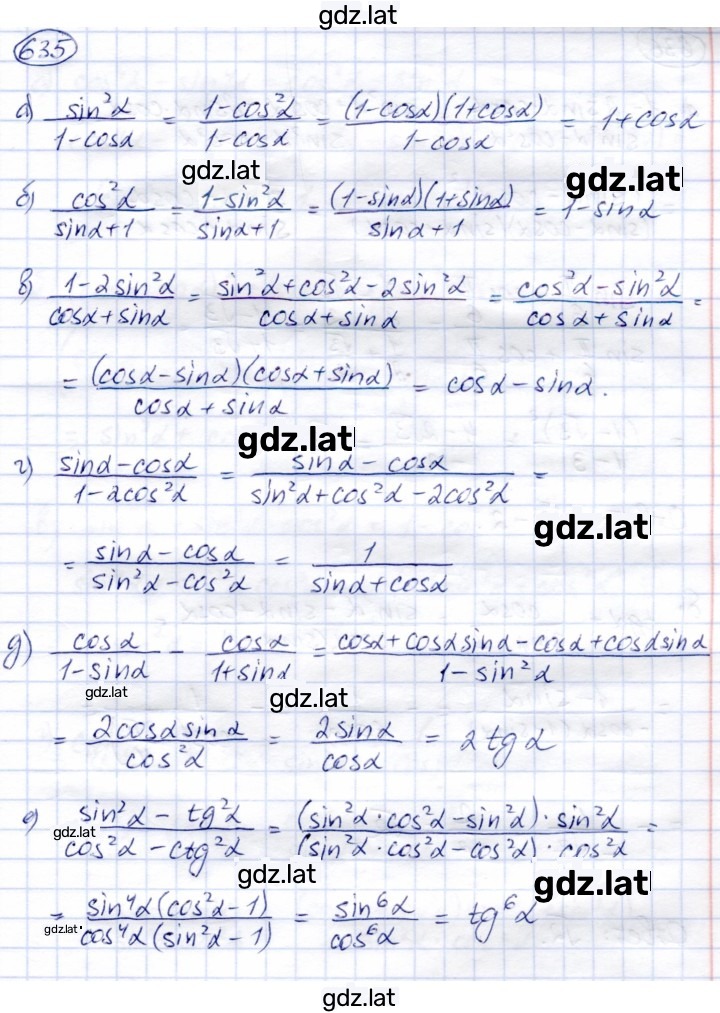 gdz.lat
635
а) sin²α / (1-cosα) = (1-cos²α) / (1-cosα) = (1-cosα)(1+cosα) / (1-cosα) = 1+cosα
gdz.lat
gdz.lat
б) cos²α / (sinα+1) = (1-sin²α) / (sinα+1) = (1-sinα)(1+sinα) / (sinα+1) = 1-sinα
в) (1-2sin²α) / (cosα+sinα) = (sin²α+cos²α-2sin²α) / (cosα+sinα) = (cos²α-sin²α) / (cosα+sinα) =
= (cosα-sinα)(cosα+sinα) / (cosα+sinα) = cosα-sinα.
gdz.lat
г) (sinα-cosα) / (1-2cos²α) = (sinα-cosα) / (sin²α+cos²α-2cos²α) =
gdz.lat
= (sinα-cosα) / (sin²α-cos²α) = 1 / (sinα+cosα)
д) cosα / (1-sinα) - cosα / (1+sinα) = (cosα+cosαsinα-cosα+cosαsinα) / (1-sin²α)
gdz.lat
gdz.lat
= 2cosαsinα / cos²α = 2sinα / cosα = 2tgα
е) (sin²α-tg²α) / (cos²α-ctg²α) = (sin²α·cos²α-sin²α)·sin²α / (sin²α·cos²α-cos²α)·cos²α =
gdz.lat
gdz.lat
gdz.lat
= sin⁴α(cos²α-1) / cos⁴α(sin²α-1) = sin⁶α / cos⁶α = tg⁶α
gdz.lat
gdz.lat